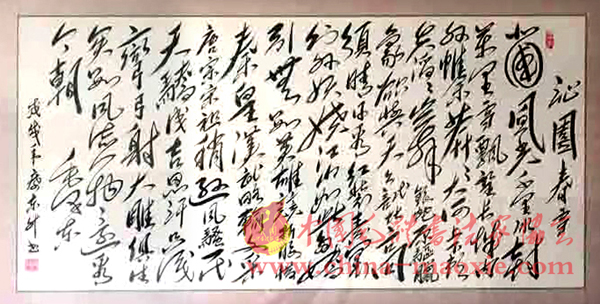 沁園春雪
北國風光千里冰封
萬里雪飄望長城內
外惟餘莽莽大河上下
頓失滔滔山舞銀蛇原馳臘
象欲與天公試比高
須晴日看紅裝素裹
分外妖嬈江山如此多嬌
引無數英雄競折腰惜
秦皇漢武略輸文采
唐宗宋祖稍遜風騷一代
天驕成吉思汗只識
彎弓射大雕俱往矣
數風流人物還看
今朝 毛澤東
戊戌年
中国毛体书法家协会